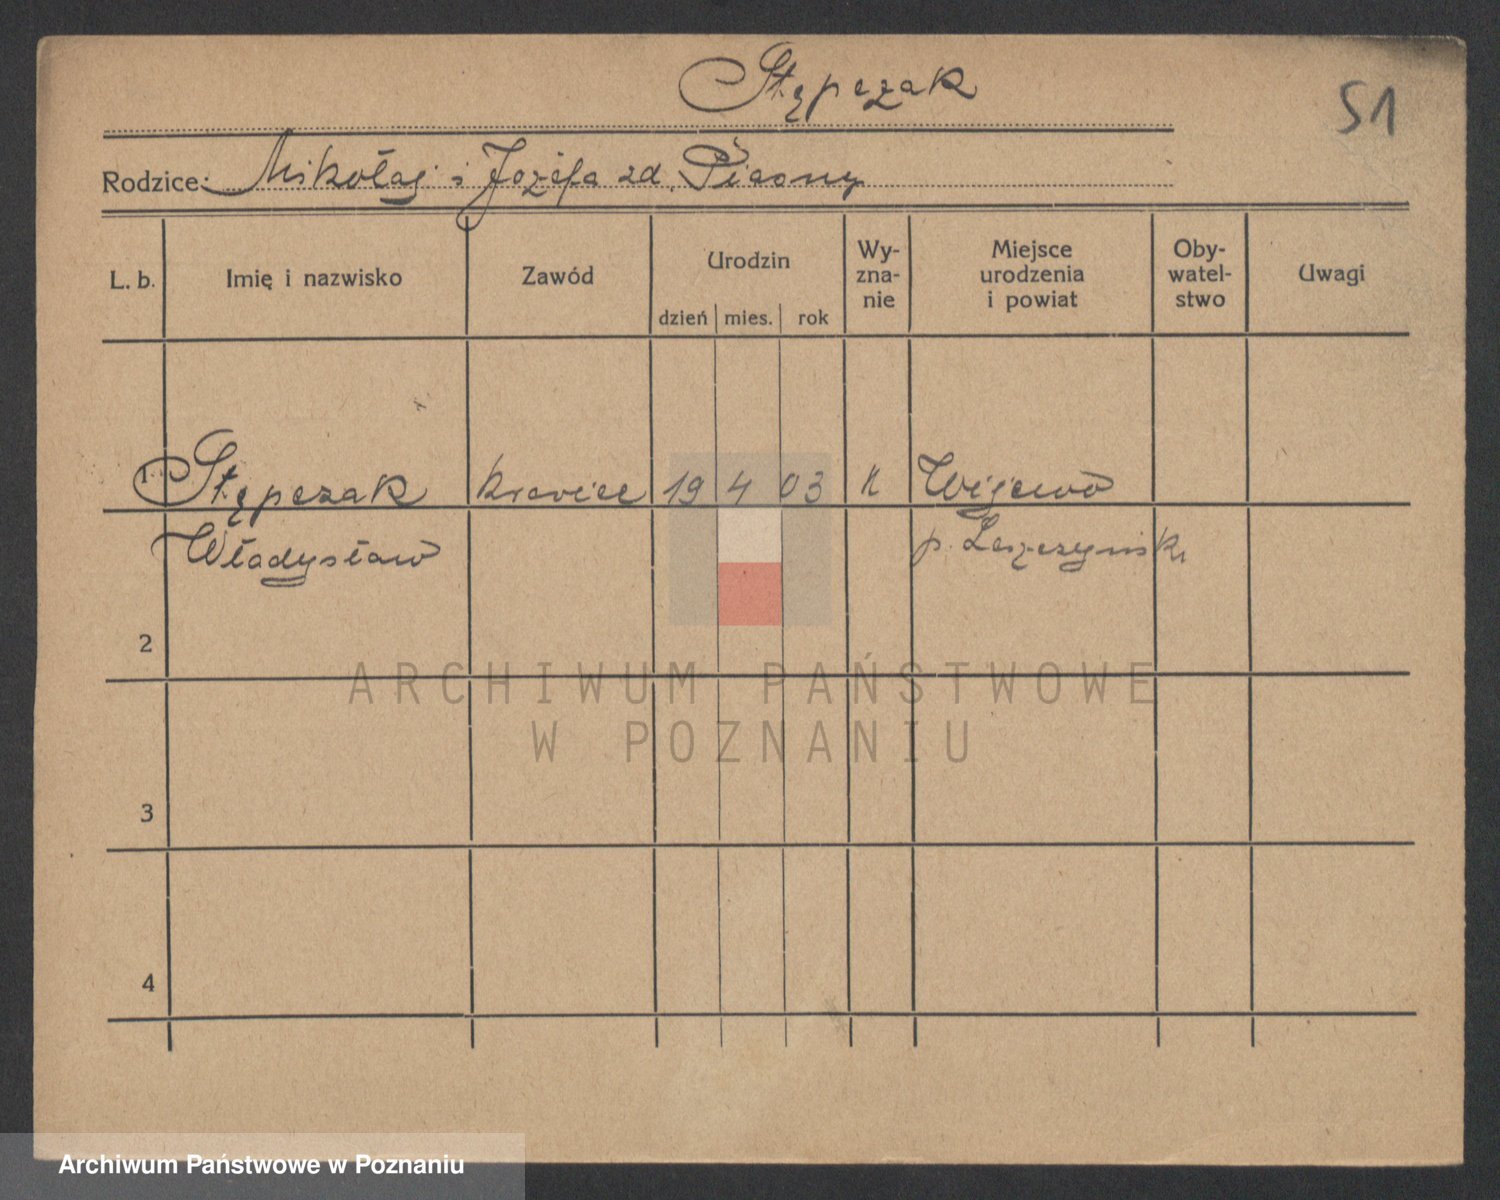 Stępczak
51
Rodzice: Mikołaj i Józefa zd. Piasny
L. b. Imię i nazwisko Zawód Urodzin dzień mies. rok Wy-zna-nie Miejsce urodzenia i powiat Oby-watel-stwo Uwagi
1. Stępczak krawiec 19 4 03 K Wijewo
Władysław p. Leszczyński
2
3
4
ARCHIWUM PAŃSTWOWE
W POZNANIU
Archiwum Państwowe w Poznaniu